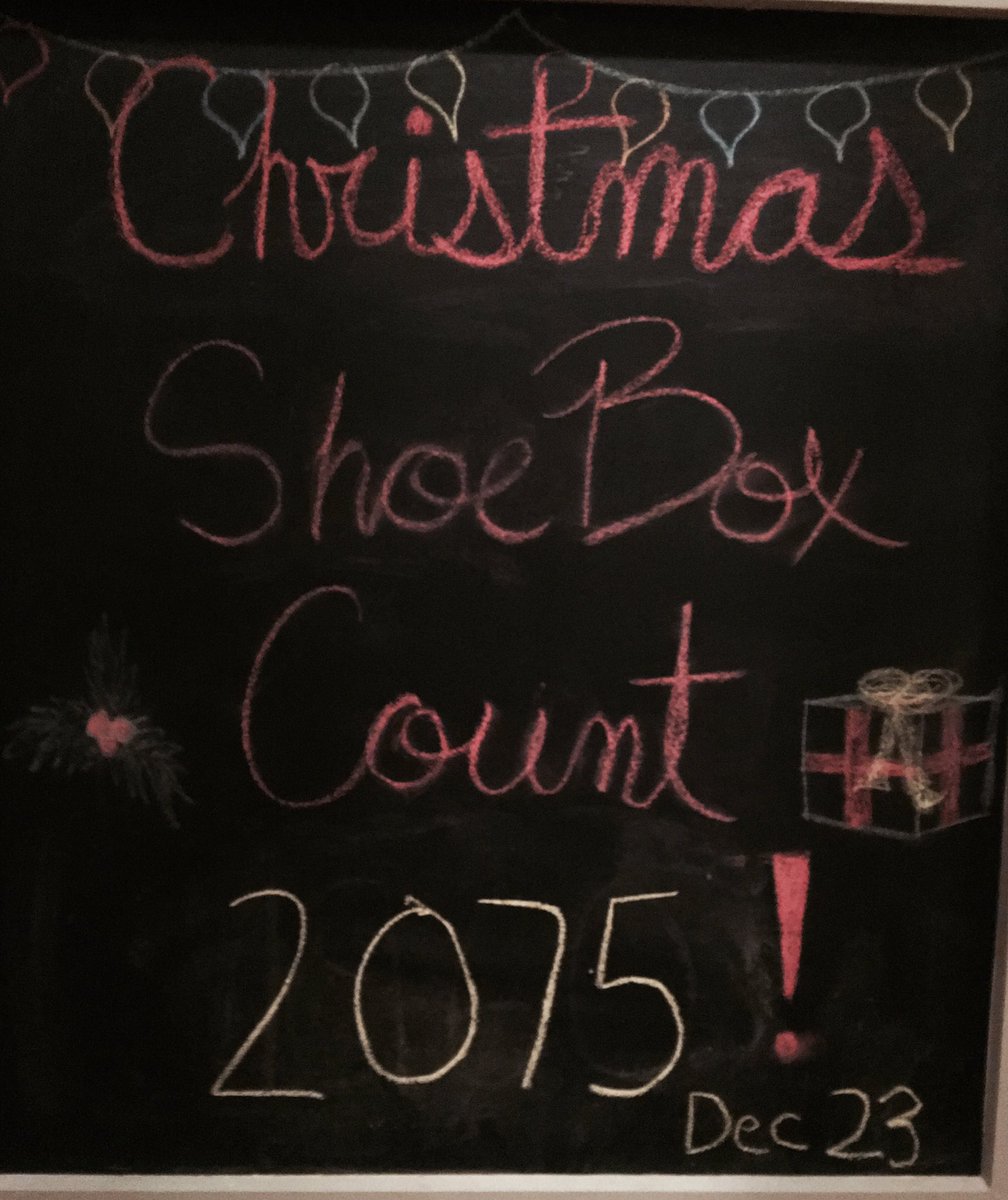 Christmas
ShoeBox
Count
2075!
Dec 23